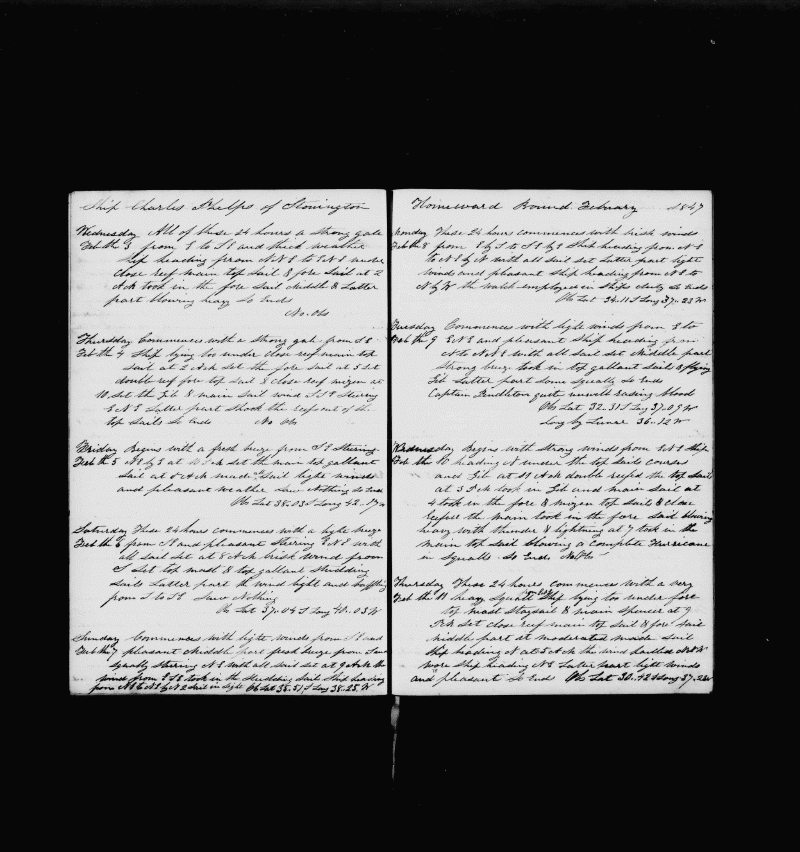 Ship Charles Phelps of Stonington
Wednesday All of these 24 hours a strong gale
Feb the 3 from E to SE and thick weather
Ship heading from NNE to ENE under
close reef main top sail & fore sail at 2
AM took in the fore sail Middle & Latter
part blowing heavy So Ends
No Obs
Thursday Commences with a strong gale from SE
Feb the 4 Ship lying too under close reef main top
sail at 2 AM set the fore sail at 5 set
double reef fore top sail & close reef mizen at
10 set the Jib & main sail wind at SE Steering
ENE Latter part Shook the reef out of the
top sails So Ends No Obs
Friday Begins with a fresh breeze from SE Steering
Feb the 5 NE by E at AM set the main top gallant
sail at 8 AM made all sail light winds
and pleasant weather Saw Nothing So Ends
Obs Lat 38.03 S Long 42.17 W
Saturday These 24 hours commences with a light breeze
Feb the 6 from S and pleasant Steering ENE with
all sail set at 8 AM brisk wind from
S Set top mast & top gallant studding
sails Latter part the wind light and baffling
from S to SE Saw Nothing
Obs Lat 37.04 S Long 40.03 W
Sunday Commences with light winds from S and
Feb the 7 pleasant Middle Part fresh breeze from
Squally Steering NE with all sail set at 9 AM the
wind from ESE took in the studding sail Ship heading
from NE to NE by N 2 sail in sight Obs Lat 35.51 S Long 38.25 W
Homeward Bound February 1847
Monday These 24 hours commences with brisk winds
Feb the 8 from E by S to SE by E Ship heading from NE
to NE by N with all sail set Latter part light
winds and pleasant Ship heading from NE to
N by W the watch employed in Ships duty So Ends
Obs Lat 34.11 S Long 37.23 W
Tuesday Commences with light winds from E to
Feb the 9 ENE and pleasant Ship heading from
N to NNE with all sail set Middle part
strong breeze took in top gallant sails & flying
Jib Latter part some squally So Ends
Captain Pendleton quite unwell raising blood
Obs Lat 32.31 S Long 37.09 W
Long by Lunar 36.12 W
Wednesday Begins with strong winds from ENE Ship
Feb the 10 heading N under the top sails courses
and Jib at 11 AM double reefed the top sails
at 3 PM took in Jib and main sail at
4 took in the fore & mizen top sails & close
reefed the main took in the fore sail blowing
heavy with thunder & lightning at 7 took in the
main top sail blowing a complete Hurricane
in squalls So Ends No Obs
Thursday These 24 hours commences with a very
Feb the 11 heavy squall Ship lying too under fore
top mast staysail & main spencer at 9
PM set close reef main top sail & fore sail
middle part it moderated made sail
Ship heading N at 5 AM the wind hauled
wore Ship heading NE Latter part light winds
and pleasant So Ends Obs Lat 30.42 S Long 37.23 W